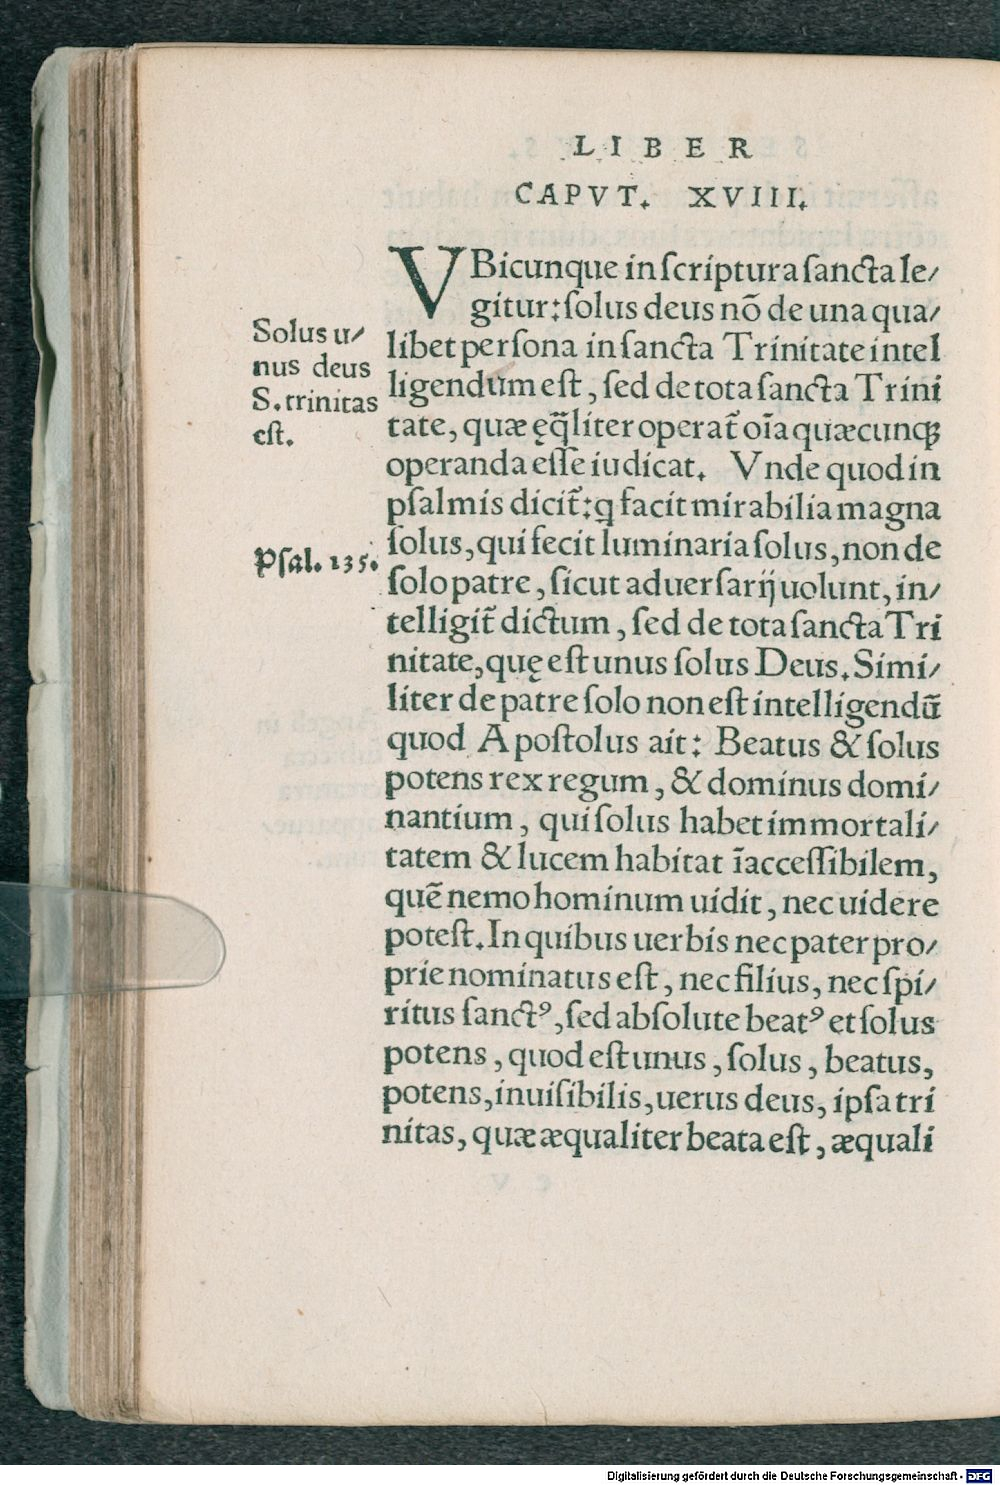 LIBER
CAPVT. XVIII.
VBicunque in scriptura sancta le/
gitur: solus deus nõ de una qua/
libet persona in sancta Trinitate intel
ligendum est, sed de tota sancta Trini
tate, quæ ęq̃liter operat̃ oĩa quæcunqꝫ
operanda esse iudicat. Vnde quod in
psalmis dicit̃: q facit mirabilia magna
solus, qui fecit luminaria solus, non de
solo patre, sicut aduersarij uolunt, in/
telligit̃ dictum, sed de tota sancta Tri
nitate, quę est unus solus Deus. Simi/
liter de patre solo non est intelligendũ
quod Apostolus ait: Beatus & solus
potens rex regum, & dominus domi/
nantium, qui solus habet immortali/
tatem & lucem habitat ĩaccessibilem,
quẽ nemo hominum uidit, nec uidere
potest. In quibus uerbis nec pater pro/
prie nominatus est, nec filius, nec spi/
ritus sanctꝰ, sed absolute beatꝰ et solus
potens, quod est unus, solus, beatus,
potens, inuisibilis, uerus deus, ipsa tri
nitas, quæ æqualiter beata est, æquali
Solus u/
nus deus
S. trinitas
est.
Psal. 135.
Digitalisierung gefördert durch die Deutsche Forschungsgemeinschaft - DFG